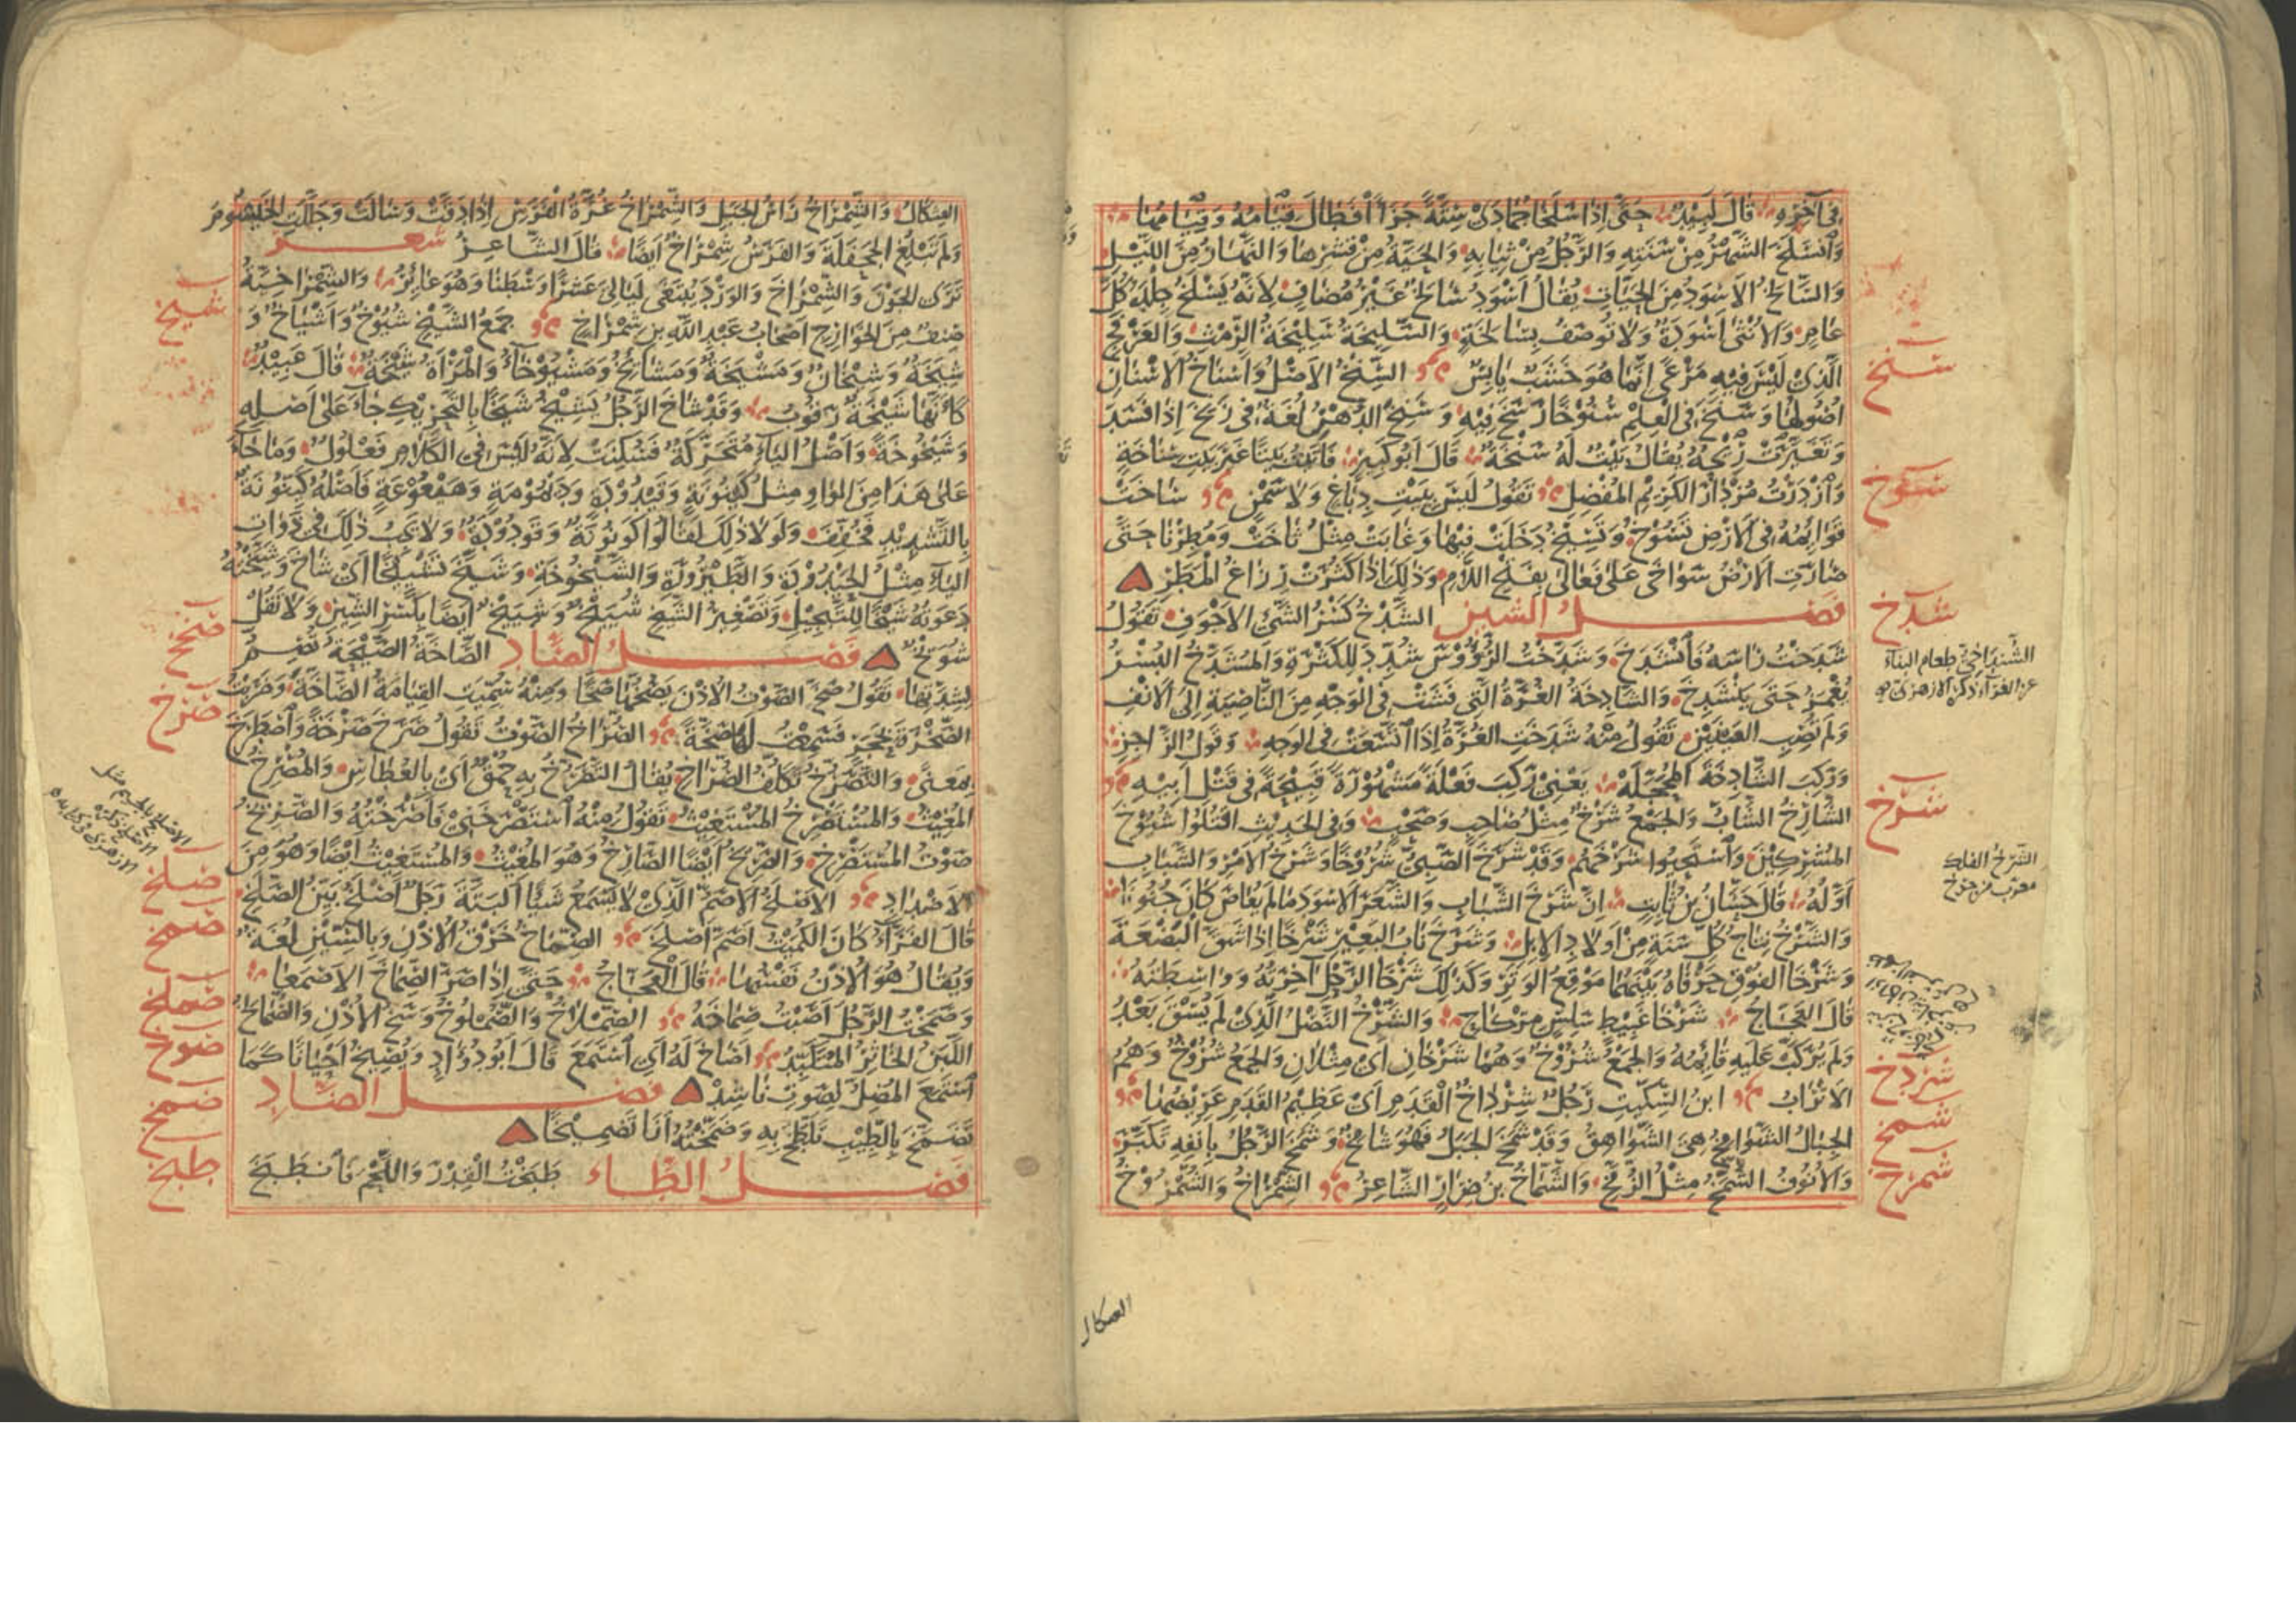 في آخره قال لبيد حتى إذا سلخا جمادى ستة جزآ فطال صيامه وصيامها
وانسلخ الشهر من سنته والرجل من ثيابه والحية من قشرها والنهار من الليل
والسالخ الأسود من الحيات يقال أسود سالخ غير مضاف لأنه يسلخ جلده كل
عام والأنثى أسودة ولا توصف بسالخة والسليخة سليخة الرمث والعرفج
الذي ليس فيه مرعى إنما هو خشب يابس السنخ الأصل وأسناخ الأسنان
أصولها وسنخ في العلم سنوخا رسخ فيه وسنخ الدهن لغة في زنخ إذا فسد
وتغيرت ريحه يقال بيت له سنخة قال أبو كبير فأتيت بيتا غير بيت سناخة
وازدرت مزدار الكريم المفضل تقول ليس ببيت دباغ ولا سمن ساخت
قوائمه في الأرض تسوخ وتسيخ دخلت فيها وغابت مثل ثاخت ومطرنا حتى
صارت الأرض سواخى على فعالى بفتح اللام وذلك إذا كثرت رزاغ المطر
فصل الشين الشدخ كسر الشيء الأجوف تقول
شدخت رأسه فانشدخ وشدخت الرؤوس شدد للكثرة والمشدخ البسر
يغمر حتى ينشدخ والشادخة الغرة التي فشت في الوجه من الناصية إلى الأنف
ولم تصب العينين تقول منه شدخت الغرة إذا اتسعت في الوجه وقول الراجز
وركب الشادخة المحجله يعني ركب فعلة مشهورة قبيحة في قتل أبيه
الشارخ الشاب والجمع شرخ مثل صاحب وصحب وفي الحديث اقتلوا شيوخ
المشركين واستحيوا شرخهم وقد شرخ الصبي شروخا وشرخ الأمر والشباب
أوله قال حسان بن ثابت إن شرخ الشباب والشعر الأسود ما لم يعاص كان جنونا
والشرخ نتاج كل سنة من أولاد الإبل وشرخ ناب البعير شرخا إذا شق البضعة
وشرخا الفوق حرفاه بينهما موقع الوتر وكذلك شرخا الرحل آخرته وواسطته
قال العجاج شرخا غبيط سلس مركاح والشرخ النصل الذي لم يسق بعد
ولم يركب عليه قائمه والجمع شروخ وهما شرخان أي مثلان والجمع شروخ وهم
الأتراب ابن السكيت رجل شرداخ القدم أي عظيم القدم عريضها
الجبال الشوامخ هي الشواهق وقد شمخ الجبل فهو شامخ وشمخ الرجل بأنفه تكبر
والأنوف الشمخ مثل الزمخ والشماخ بن ضرار الشاعر الشمراخ والشمروخ
سنخ
سوخ
شدخ
الشنداخي طعام البناء
عن الفراء ذكره الأزهري
شرخ
شردخ
شمخ
شمرخ
العثكال
العثكال والشمراخ رأس الجبل والشمراخ غرة الفرس إذا دقت وسالت وجللت الخيشوم
ولم تبلغ الجحفلة والفرس شمراخ أيضا قال الشاعر شعر
ترى الجون والشمراخ والورد يبتغى ليالي عشرا وسطنا وهو عائر والشمراخية
صنف من الخوارج أصحاب عبد الله بن شمراخ جمع الشيخ شيوخ وأشياخ و
شيخة وشيخان ومشيخة ومشايخ ومشيوخاء والمرأة شيخة قال عبيد
كأنها شيخة رقوب وقد شاخ الرجل يشيخ شيخا بالتحريك جاء على أصله
وشيخوخة وأصل الياء متحركة فسكنت لأنه ليس في الكلام فعلول وما جاء
على هذا من الواو مثل كينونة وقيدودة وديمومة وهيعوعة فأصله كينونة
بالتشديد فخفف ولولا ذلك لقالوا كونونة وقودودة ولا يجب ذلك في ذوات
الياء مثل الحيدودة والطيرورة والشيخوخة وشيخ تشييخا أي شاخ وشيخته
دعوته شيخا للتبجيل وتصغير الشيخ شييخ وشييخ أيضا بكسر الشين ولا تقل
شويخ فصل الصاد الصاخة الصيحة تصم
لشدتها تقول صخ الصوت الأذن يصخها صخا ومنه سميت القيامة الصاخة وضربت
الصخرة بحجر فسمعت لها صخة الصراخ الصوت تقول صرخ صرخة واصطرخ
بمعنى والتصرخ تكلف الصراخ يقال التصرخ به حمق أي بالعطاس والمصرخ
المغيث والمستصرخ المستغيث تقول منه استصرخني فأصرخته والصريخ
صوت المستصرخ والصريخ أيضا الصارخ وهو المغيث والمستغيث أيضا وهو من
الأضداد الأصلخ الأصم الذي لا يسمع شيئا البتة رجل أصلخ بين الصلخ
قال الفراء كان الكميت أصم أصلخ الصماخ خرق الأذن وبالسين لغة
ويقال هو الأذن نفسها قال العجاج حتى إذا صر الصماخ الأصمعا
وصمخت الرجل أصبت صماخه الصملاخ والصملوخ وسخ الأذن والصمالخ
اللبن الخاثر المتكبد أصاخ له أي استمع قال أبو دؤاد ويصيخ أحيانا كما
استمع المضل لصوت ناشد فصل الضاد
تضمخ بالطيب تلطخ به وضمخته أنا تضميخا
فصل الطاء طبخت القدر واللحم فانطبخ
شيخ
صخخ
صرخ
صلخ
صمخ
صملخ
صوخ
ضمخ
طبخ